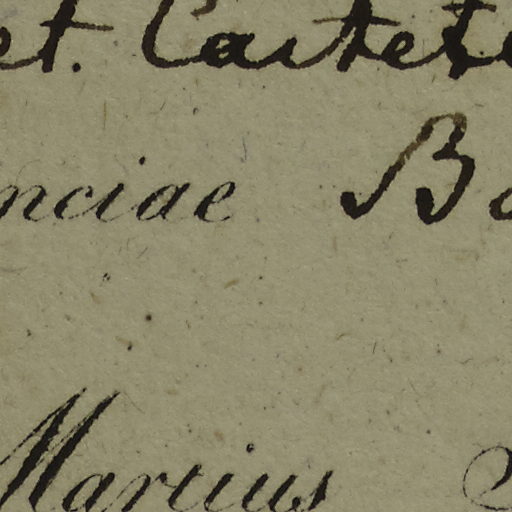 et. Cartete
nciae Ba
Martius